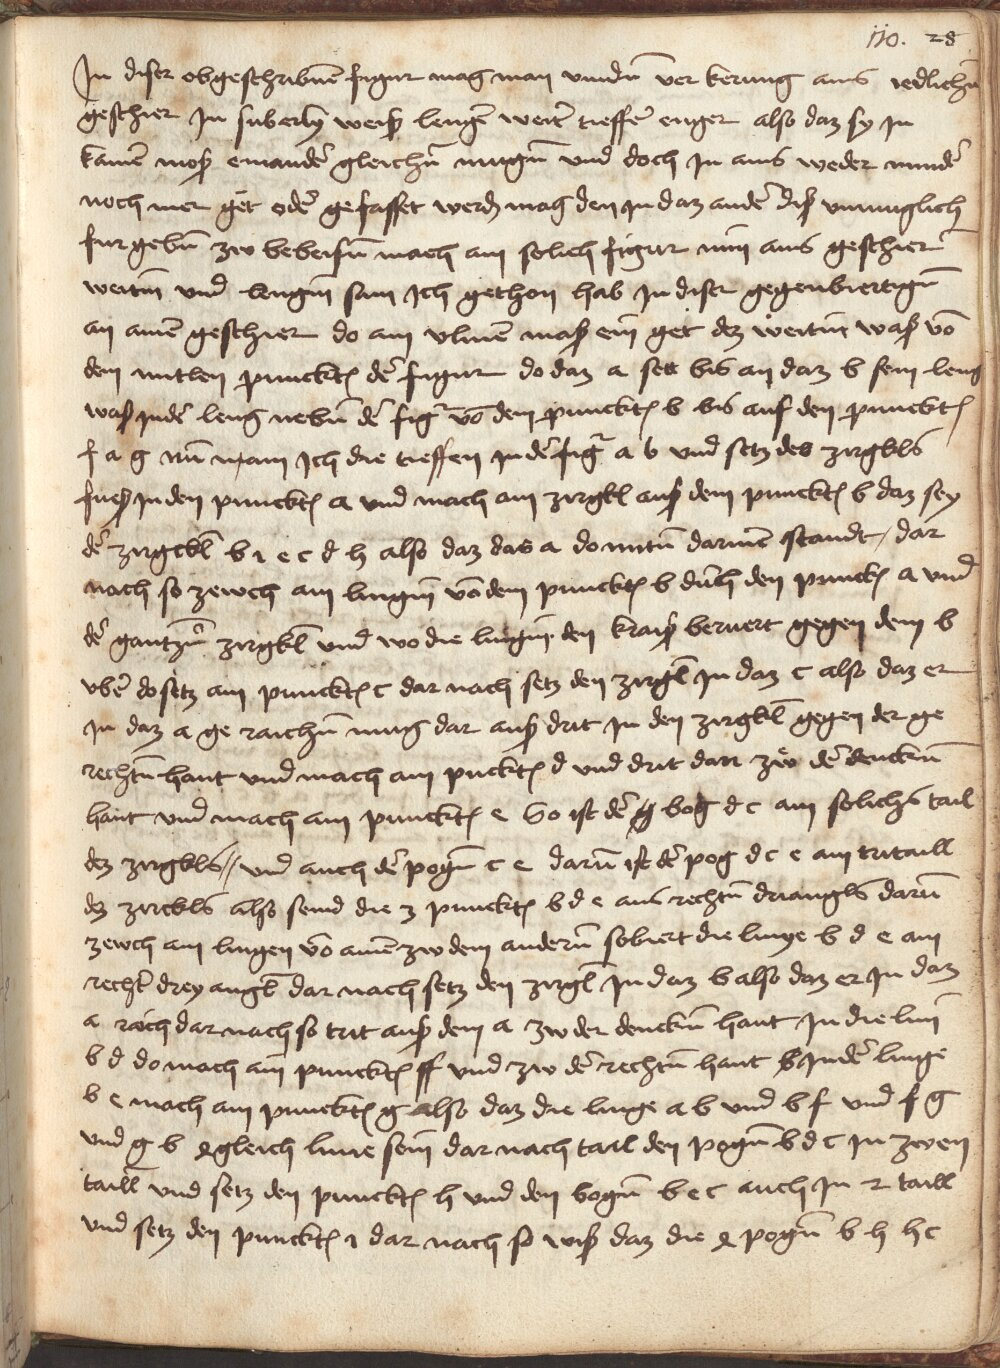 110. 28
In diser obgeschribnē figur mag man vindn̄ ver kerung ains iedlichn̄
geschier In suberly weiß lengē weitē tieffē enger also daz sy In
kainē moß einandē gleichn̄ mugn̄ und doch In ains weder mindē
noch mer get odē gefasset werdn̄ mag den In daz andē diß vnmuglich
fur gebn̄ zw bebeisn̄ mach ain solich figur nim ains geschier
weitin̄ und lengin̄ sam Ich gethon hab In diser gegenbiertign̄
an ainē geschier do ain vlmē maß ein get dez weitin waß vō
dem mitlen punckten dē figur do daz a stet bis an daz b sein leng
waß Indē leng nebn̄ dē figr̄ vō dem punckten b bis auf den punckten
f a g nū nam Ich die tieffen In dē figr̄ a b und setz des zirgkls
fueß In den punckten a und mach ain zirgkl auß dem punckten b daz sey
dē zirgckl b i e c d h also daz das a do mitn̄ darinē standt / dar
nach so zewch ain lingin̄ vō dem punckten b durch den punckten a und
dē gantzn̄ zirgkl und wo die lingin̄ den kraiß beruert gegen dem b
vbē do setz ain punckten c dar nach setz den zirgkl In daz c also daz er
In daz a ge raichn̄ mug dar auß drit In den zirgkl gegen der ge
rechtn̄ hant und mach ain puckten d und drit dan zw dē denckn̄
hant und mach ain punckten e So ist dē bog d c ain solichs tail
dez zirgkls // und auch dē pogn̄ c e darū ist dē pog d c e ain tritaill
dez zirckls also seind die 3 punckten b d e ains rechtn̄ driangls darū
zewch ain lingen vō ainē zw dem andern̄ so biert die linge b d e ain
rechtē dreyangkl dar nach setz den zirgkl In daz b also daz er In daz
a raich dar nach so trit auß dem a zw der denckn̄ hant In die lini
b d do mach ain punckten ff und zw dē rechtn̄ hant In dē linge
b e mach ain punckten g also daz die linge a b und b f und f g
und g b gleich linie sein dar nach tail den pogn̄ b d c In zwen
taill und setz den punckten h und den bogn̄ b e c auch In 2 taill
und setz den punckten i dar nach so wiß daz die 4 pogn̄ b h h c